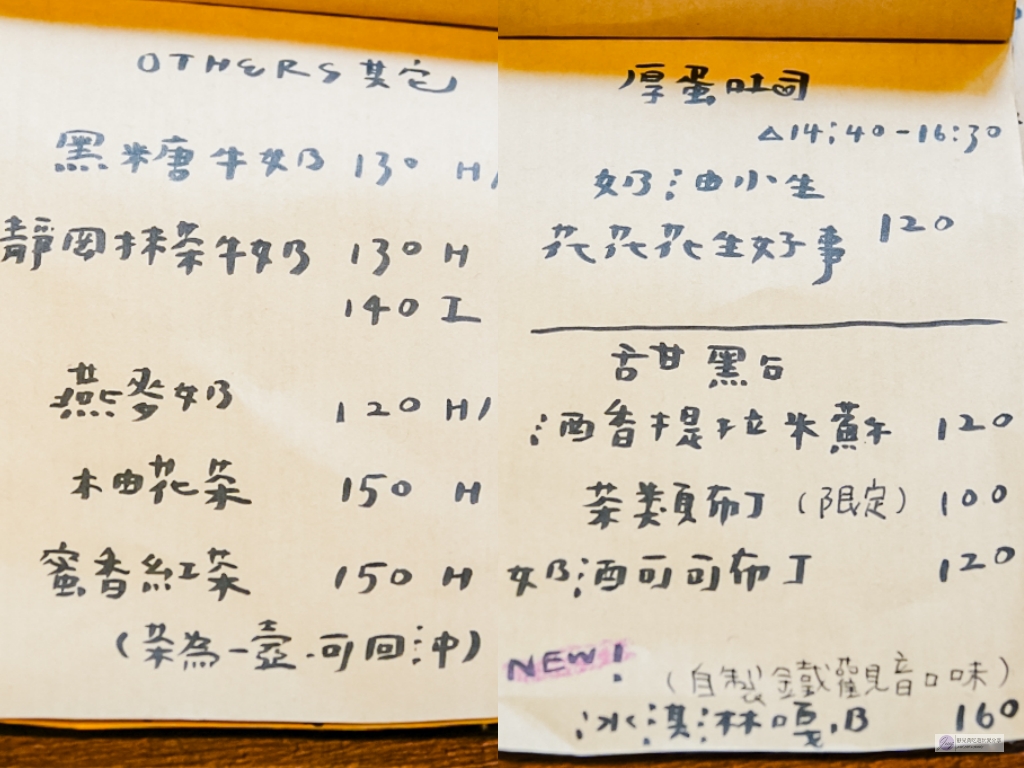 OTHERS 其它
黑糖牛奶 130 H/
靜岡抹茶牛奶 130 H
140 I
燕麥奶 120 H/
柚花茶 150 H
蜜香紅茶 150 H
(茶為一壺.可回沖)
厚蛋吐司
△14:40-16:30
奶油小生
花花花生好事 120
甜點
酒香提拉米蘇 120
茶類布丁 (限定) 100
奶酒可可布丁 120
NEW!
(自製鐵觀音口味)
冰淇淋嘎逼 160